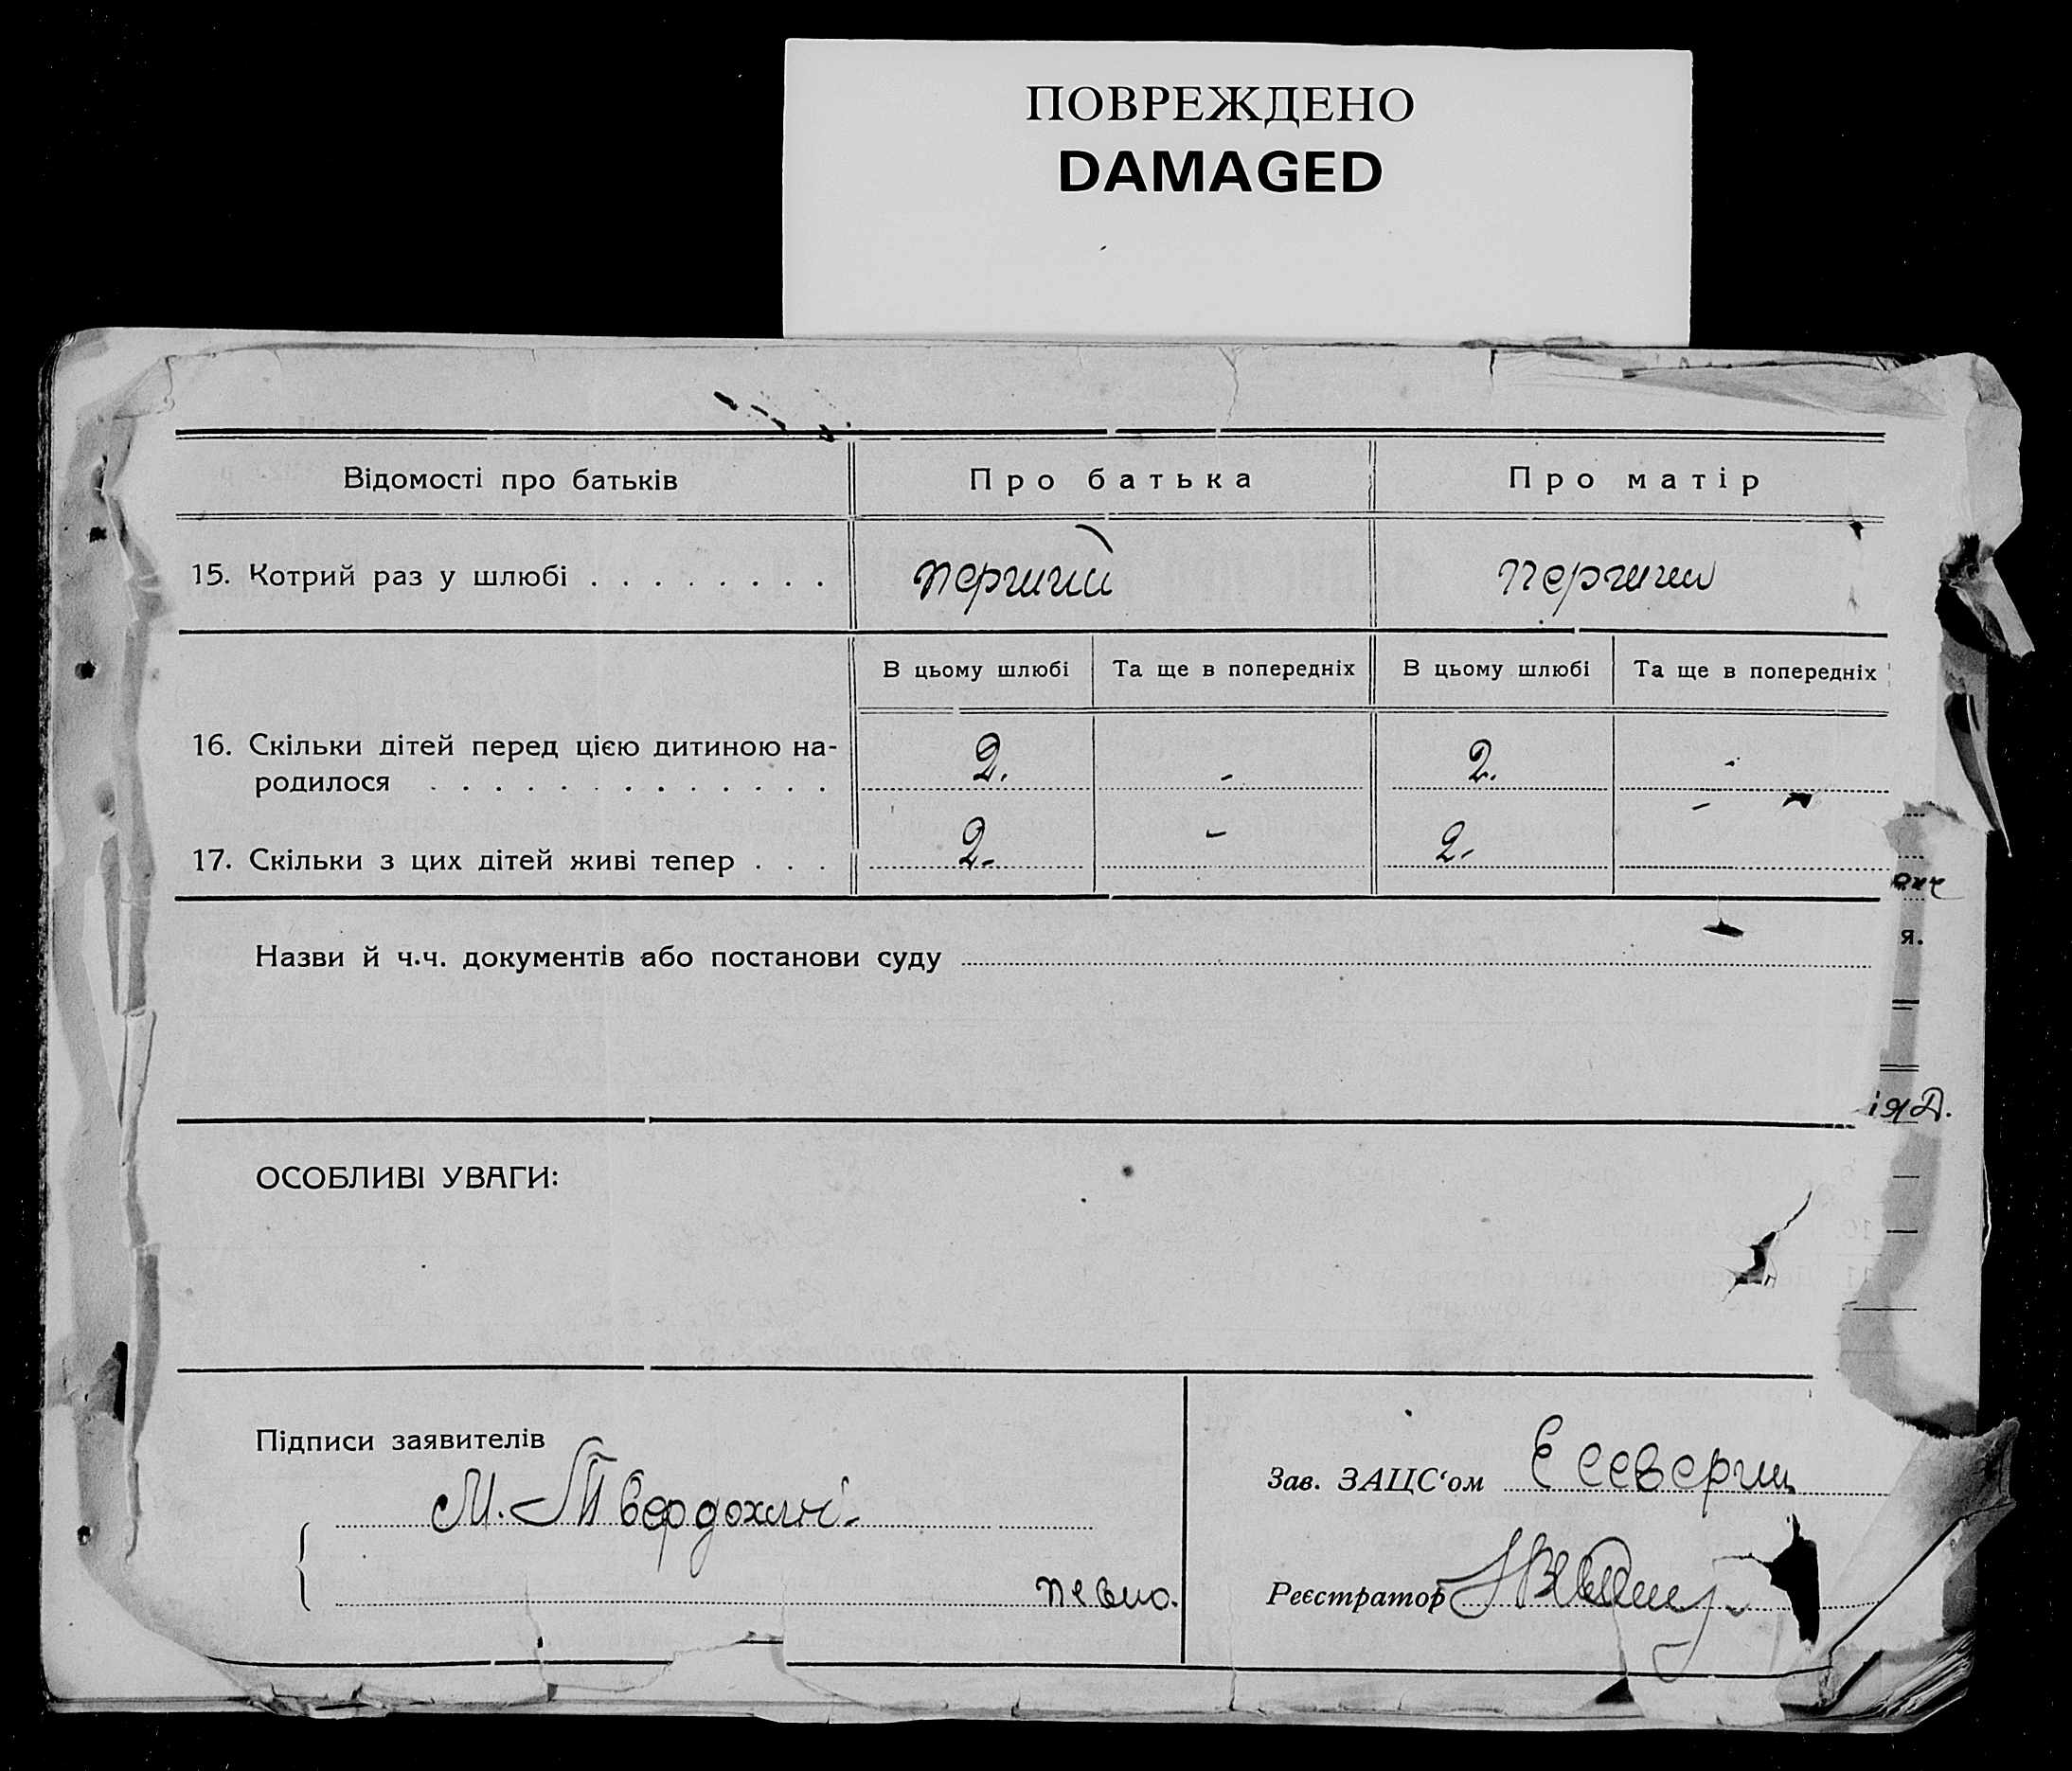 ПОВРЕЖДЕНО
DAMAGED
Відомості про батьків Про батька Про матір
15. Котрий раз у шлюбі . . . . . . . . перший перший
В цьому шлюбі Та ще в попередніх В цьому шлюбі Та ще в попередніх
16. Скільки дітей перед цією дитиною на-
родилося . . . . . . . . . . . . . 2. - 2. -
17. Скільки з цих дітей живі тепер . . . 2. - 2. -
Назви й ч.ч. документів або постанови суду
я.
ОСОБЛИВІ УВАГИ:
Підписи заявителів
М. Твердохліб
певно.
Зав. ЗАЦС‘ом Є Северин
Реєстратор